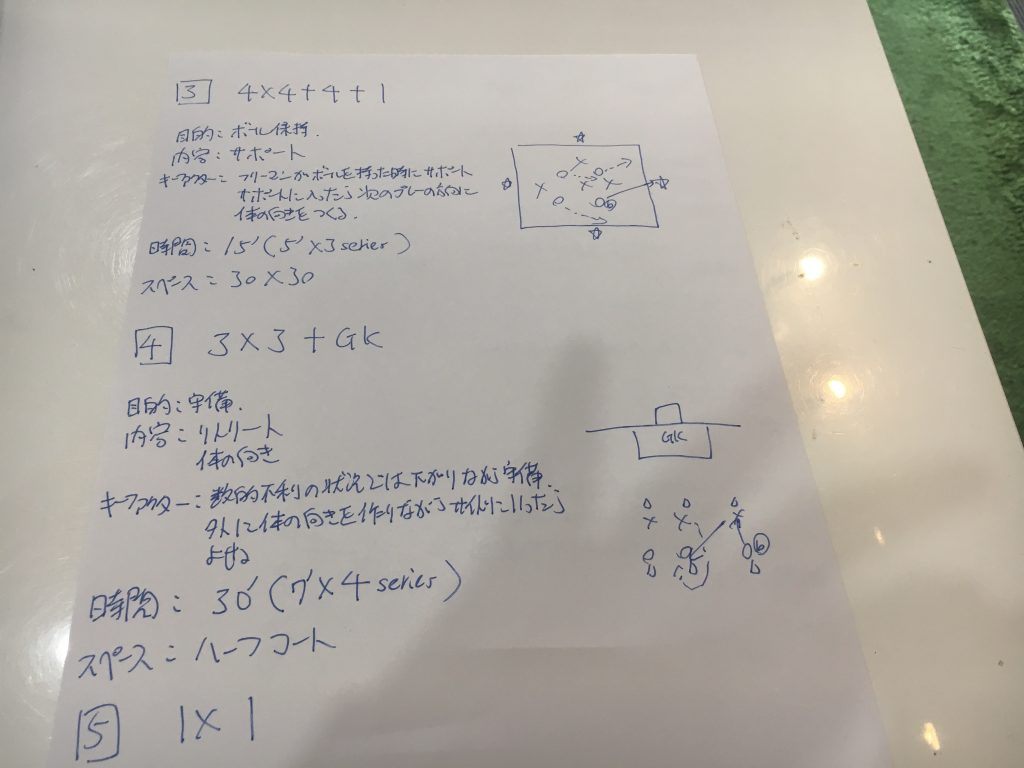 3 4×4+4+1
目的: ボール保持.
内容: サポート
キーファクター: フリーマンがボールを持った時にサポート
サポートに入ったら次のプレーのために
体の向きをつくる.
時間: 15'(5'×3 series)
スペース: 30×30
4 3×3+GK
目的: 守備.
内容: リトリート
体の向き
キーファクター: 数的不利の状況では下がりながら守備.
外に体の向きを作りながらサイドに入ったら
よせる
時間: 30'(7'×4 series)
スペース: ハーフコート
GK
5 1×1